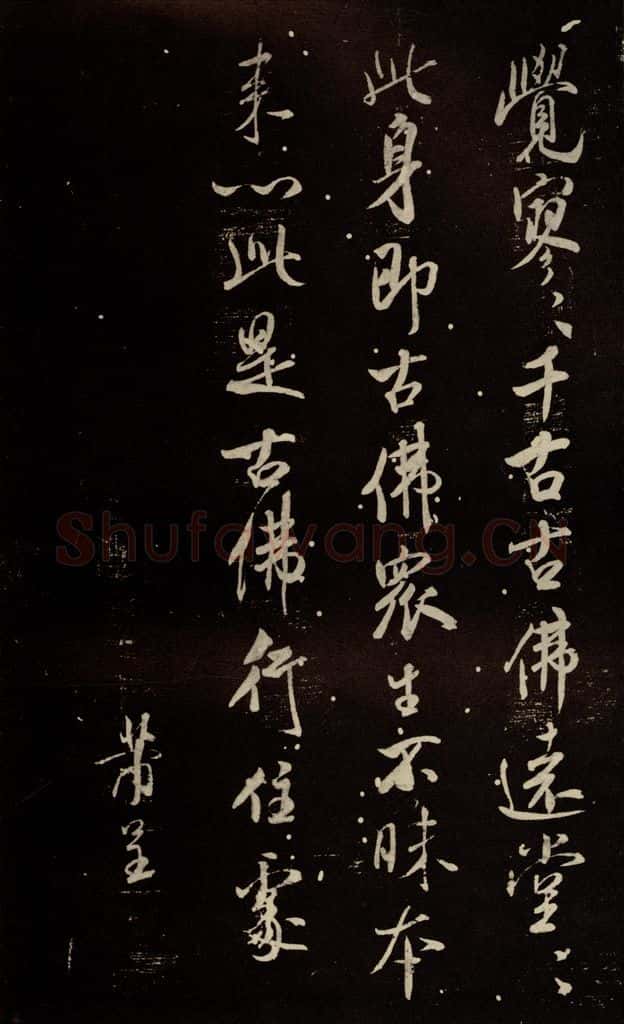 覺寥〻千古古佛遠堂〻
此身即古佛眾生不昧本
来心此是古佛行住處
芾呈
Shufawang.CN